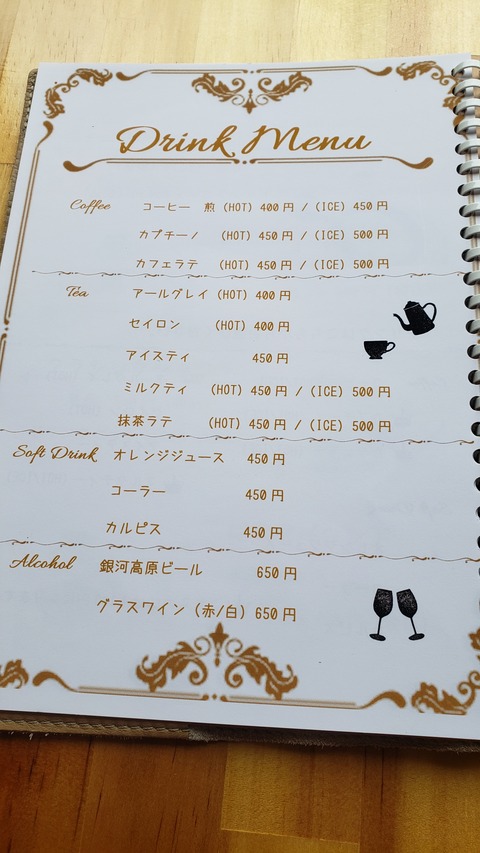 Drink Menu
Coffee コーヒー 煎 (HOT) 400 円 / (ICE) 450 円
カプチーノ (HOT) 450 円 / (ICE) 500 円
カフェラテ (HOT) 450 円 / (ICE) 500 円
Tea アールグレイ (HOT) 400 円
セイロン (HOT) 400 円
アイスティ 450 円
ミルクティ (HOT) 450 円 / (ICE) 500 円
抹茶ラテ (HOT) 450 円 / (ICE) 500 円
Soft Drink オレンジジュース 450 円
コーラー 450 円
カルピス 450 円
Alcohol 銀河高原ビール 650 円
グラスワイン (赤/白) 650 円